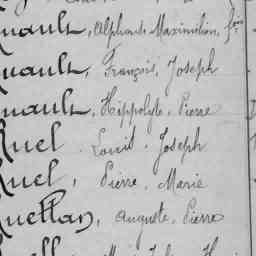 nault, Alphonse Maximilien,
nault, François, Joseph
nault, Hippolyte, Pierre
Ruel, Louis, Joseph
Ruel, Pierre, Marie
Ruellan, Auguste, Pierre